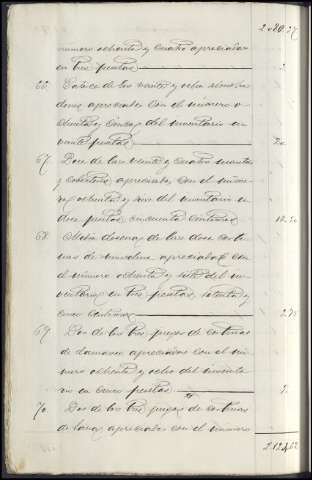 2080.27
número ochenta y cuatro apreciadas
en tres pesetas
66. Catorce de las veinte y ocho almoha-
donas apreciadas con el número o-
chenta y cinco del inventario en
veinte pesetas
67. Doce de las veinte y cuatro mantas
y cobertores apreciadas con el núme-
ro ochenta y seis del inventario en
doce pesetas cincuenta céntimos 12.50
68. Media docena de las doce corti-
nas de muselina apreciadas con
el número ochenta y siete del in-
ventario en tres pesetas, setenta y
cinco céntimos
69. Dos de los tres juegos de cortinas
de damasco apreciadas con el nú-
mero ochenta y ocho del inventa-
rio en cinco pesetas
70. Dos de los tres juegos de cortinas
de lana, apreciadas con el número